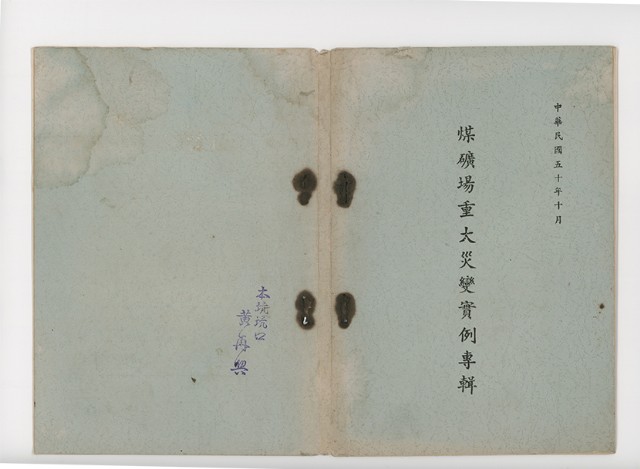 中華民國五十年十月
煤礦場重大災變實例專輯
本坑坑口
黃再興